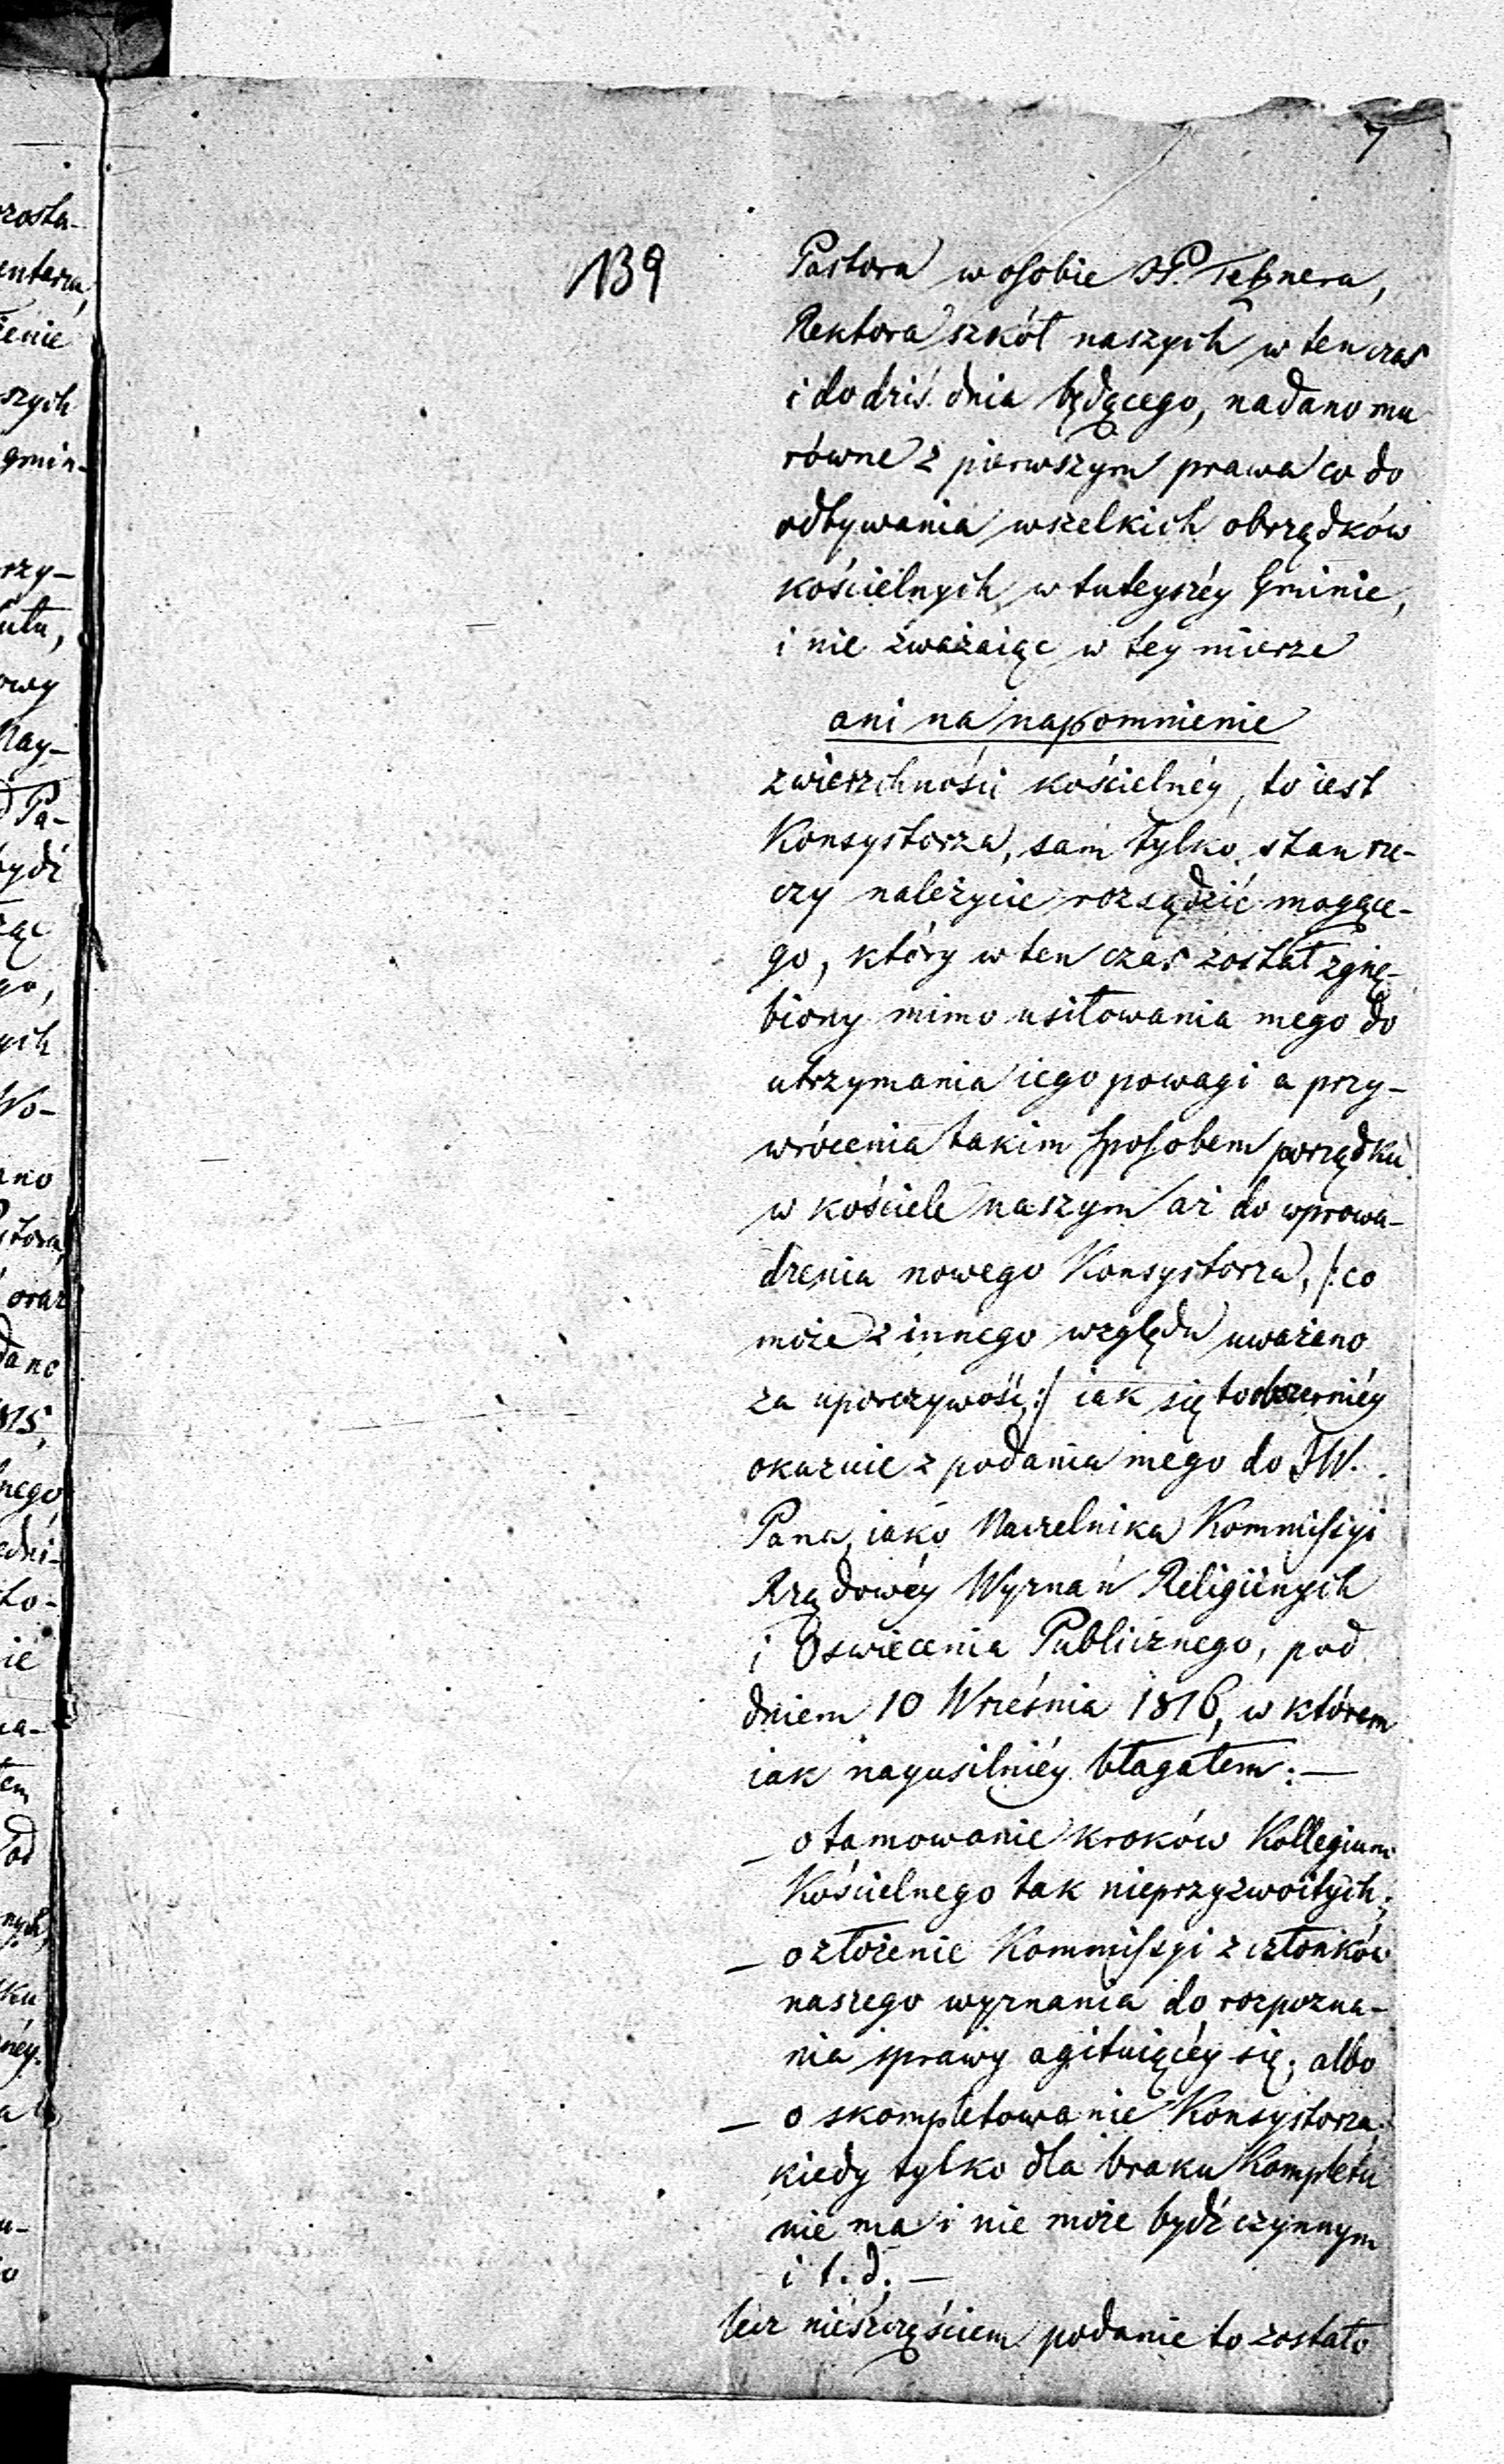 7
139
Pastora w osobie JP. Tetznera,
Rektora szkół naszych w ten czas
i do dziś dnia będącego, nadano mu
równe z pierwszym prawa co do
odbywania wszelkich obrządków
kościelnych w tuteyszéy Gminie,
i nie zważaiąc w tey mierze
ani na napomnienie
zwierzchności kościelnéy, to iest
Konsystorza, sam tylko stan rze-
czy należycie rozsądzić mogące-
go, który w ten czas został zgnę-
biony mimo usiłowania mego do
utrzymania iego powagi a przy-
wrócenia takim sposobem porządku
w kościele naszym aż do wprowa-
dzenia nowego Konsystorza, /:co
może z innego względu uważano
za uporczywość:/ iak się to obszerniéy
okazuie z podania mego do JW.
Pana, iako Naczelnika Kommissyi
Rządowéy Wyznań Religiinych
i Oswiecenia Publicznego, pod
dniem 10 Wreśnia 1816, w którem
iak nayusilniéy błagałem: —
— o tamowanie kroków Kollegium
Kościelnego tak nieprzyzwoitych;
— o złożenie Kommissyi z członków
naszego wyznania do rozpozna-
nia sprawy agituiącéy się; albo
— o skompletowanie Konsystorza,
kiedy tylko dla braku Kompletu
nie ma i nie może bydź czynnym
i t. d. —
lecz nieszczęściem podanie to zostało
rosta-
ienie
szych
gmin-
rzy-
owy
Nay-
Pa-
bydź
go,
ych
Wo-
ano
stora,
oraz
dano
815,
nego
sto-
nie
tem
nych,
sku
néy.